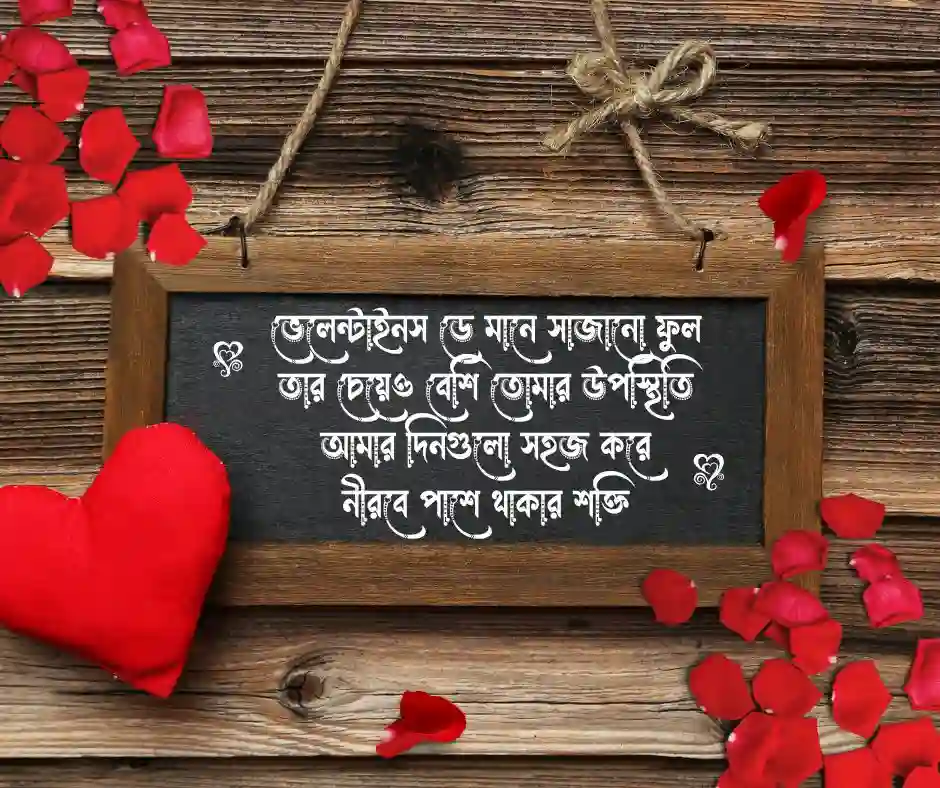 ভেলেন্টাইনস ডে মানে সাজানো ফুল
তার চেয়েও বেশি তোমার উপস্থিতি
আমার দিনগুলো সহজ করে
নীরবে পাশে থাকার শক্তি